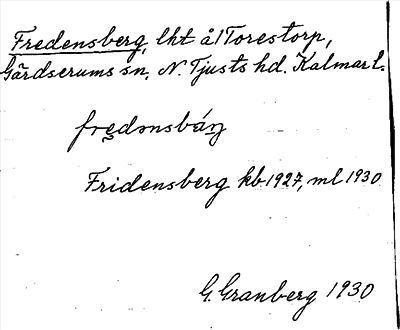 Fredensberg, lht å 1 Torestorp,
Gärdserums sn. N. Tjusts hd. Kalmar l.
fredənsbáŋ
Fridensberg kb 1927, ml 1930
G. Granberg 1930